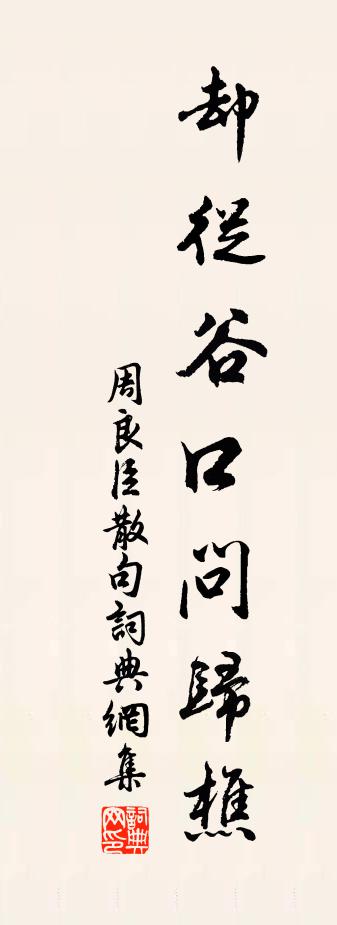 却從谷口問歸樵
周良臣散句詞典網集
詞典網印